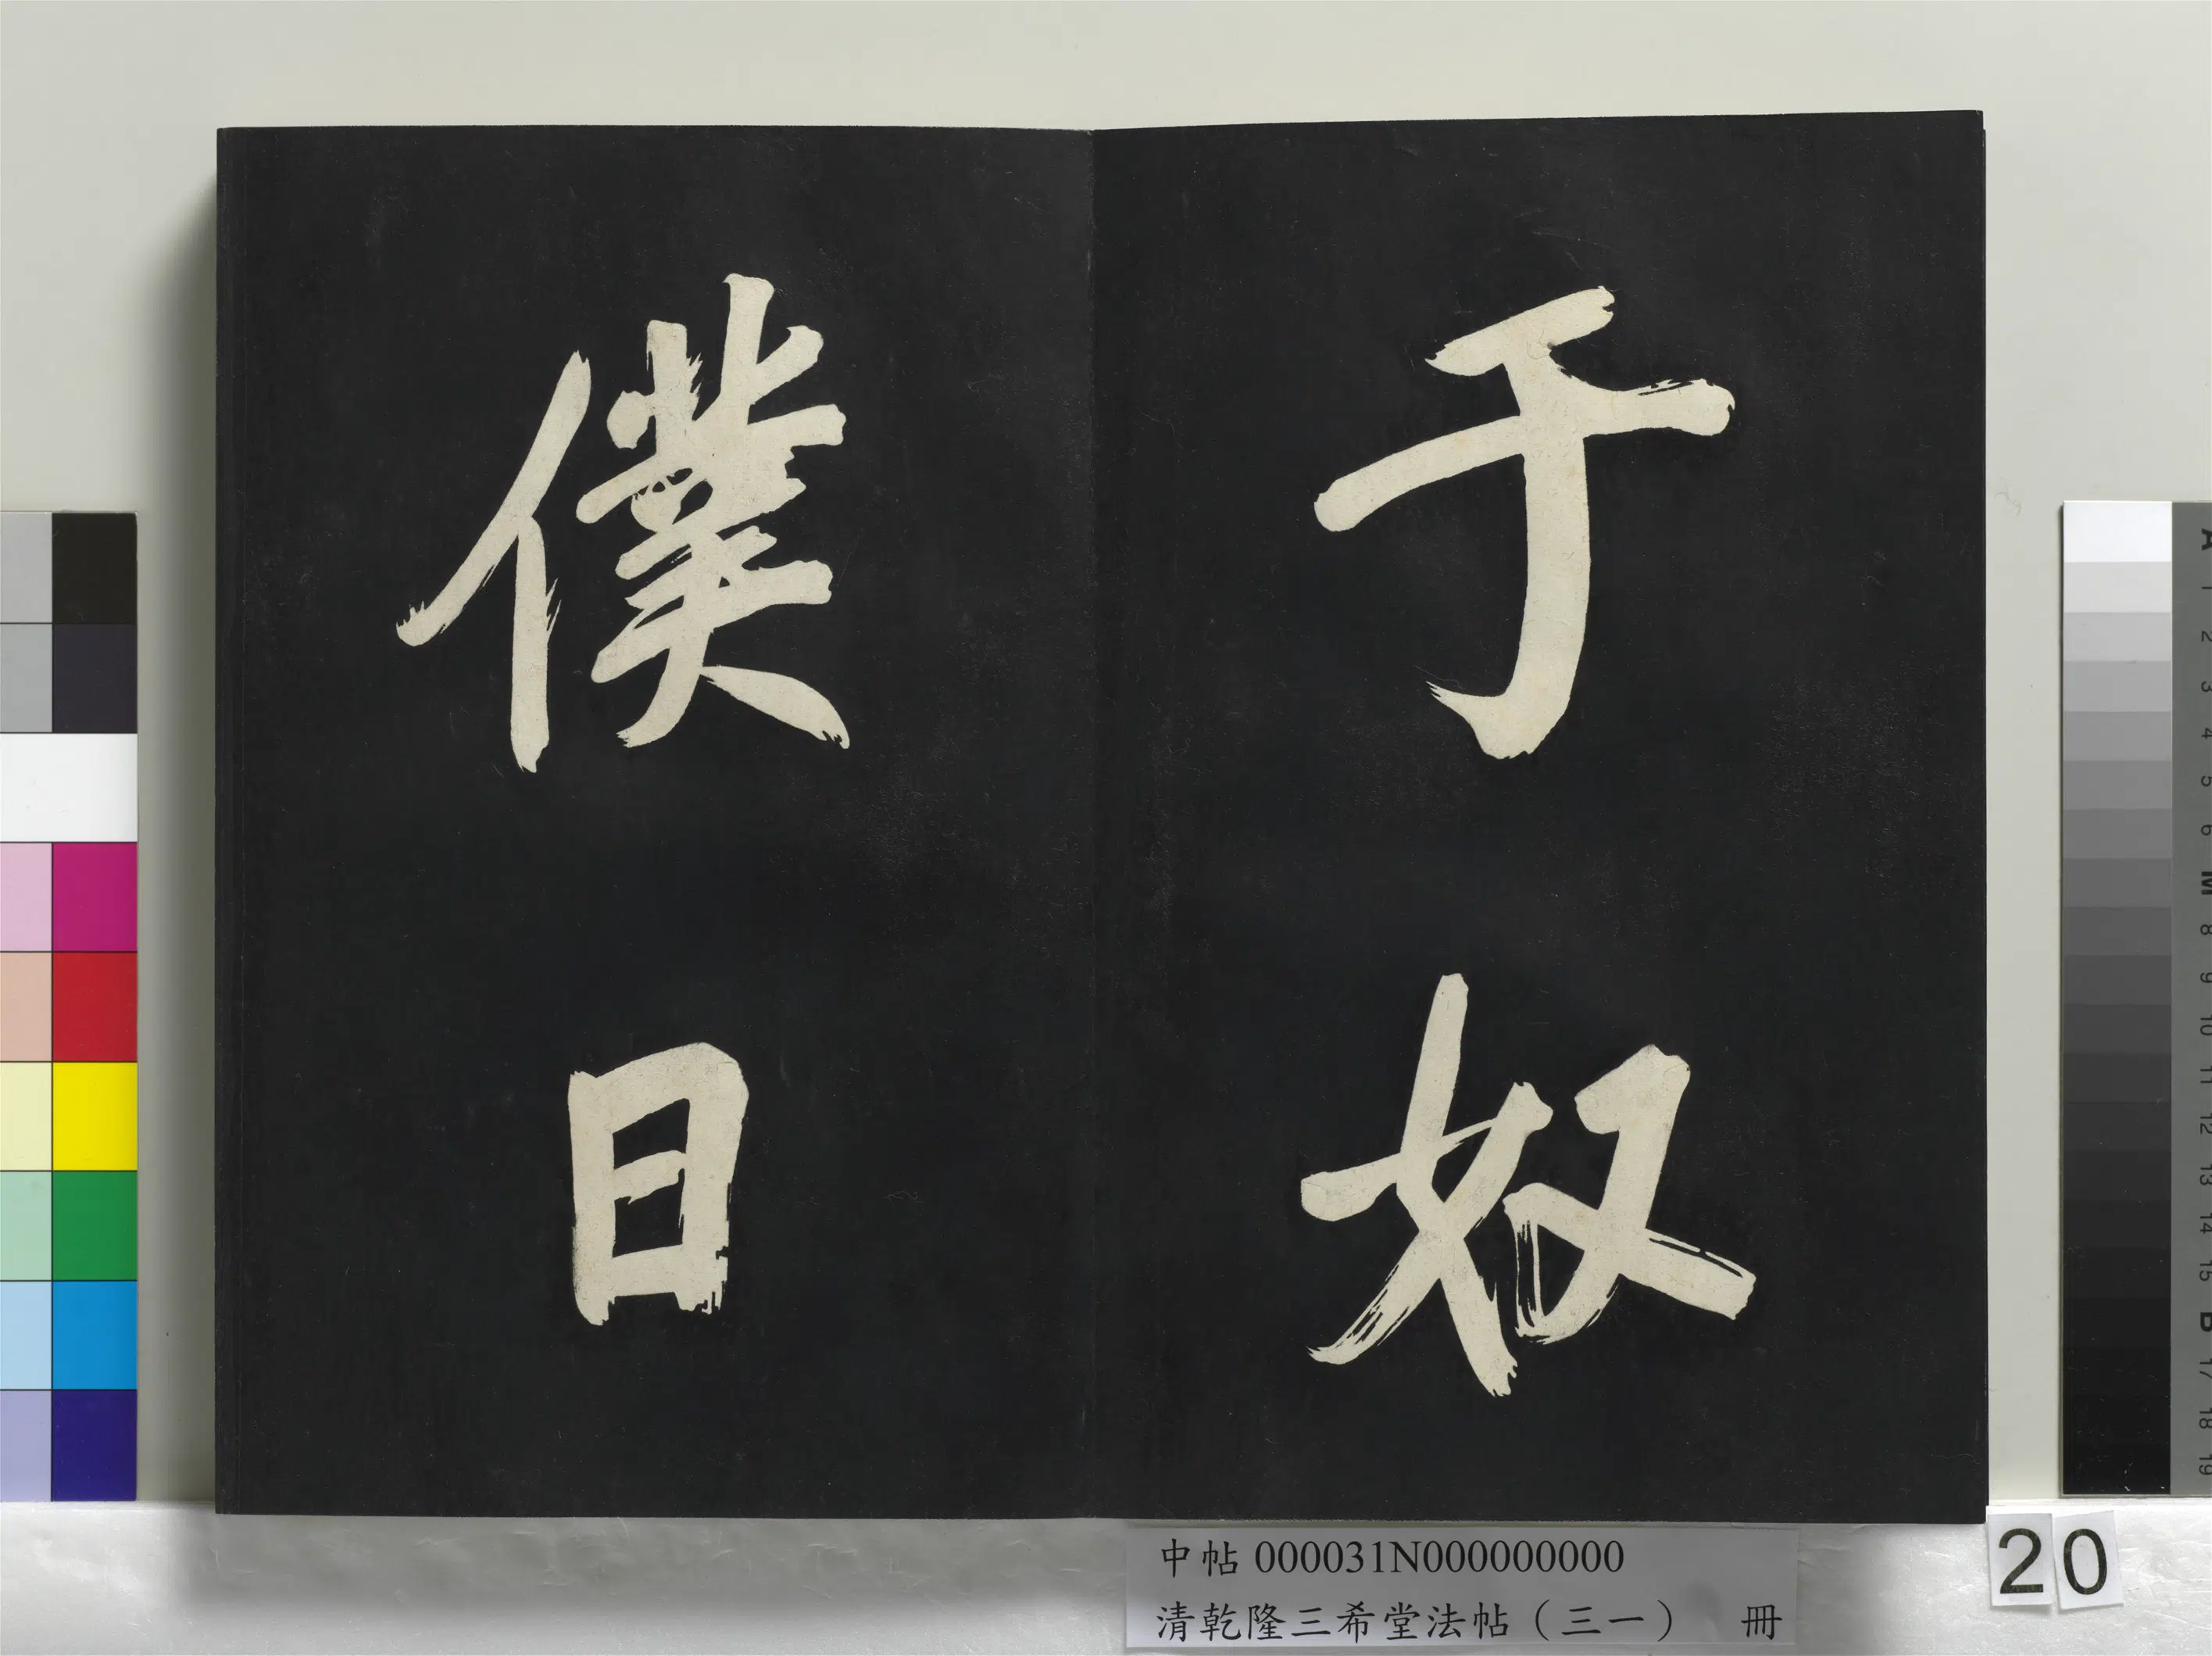 于奴
僕日
中帖 000031N000000000
清乾隆三希堂法帖（三一） 冊
20
A 1 2 3 4 5 6 M 8 9 10 11 12 13 14 15 B 17 18 19